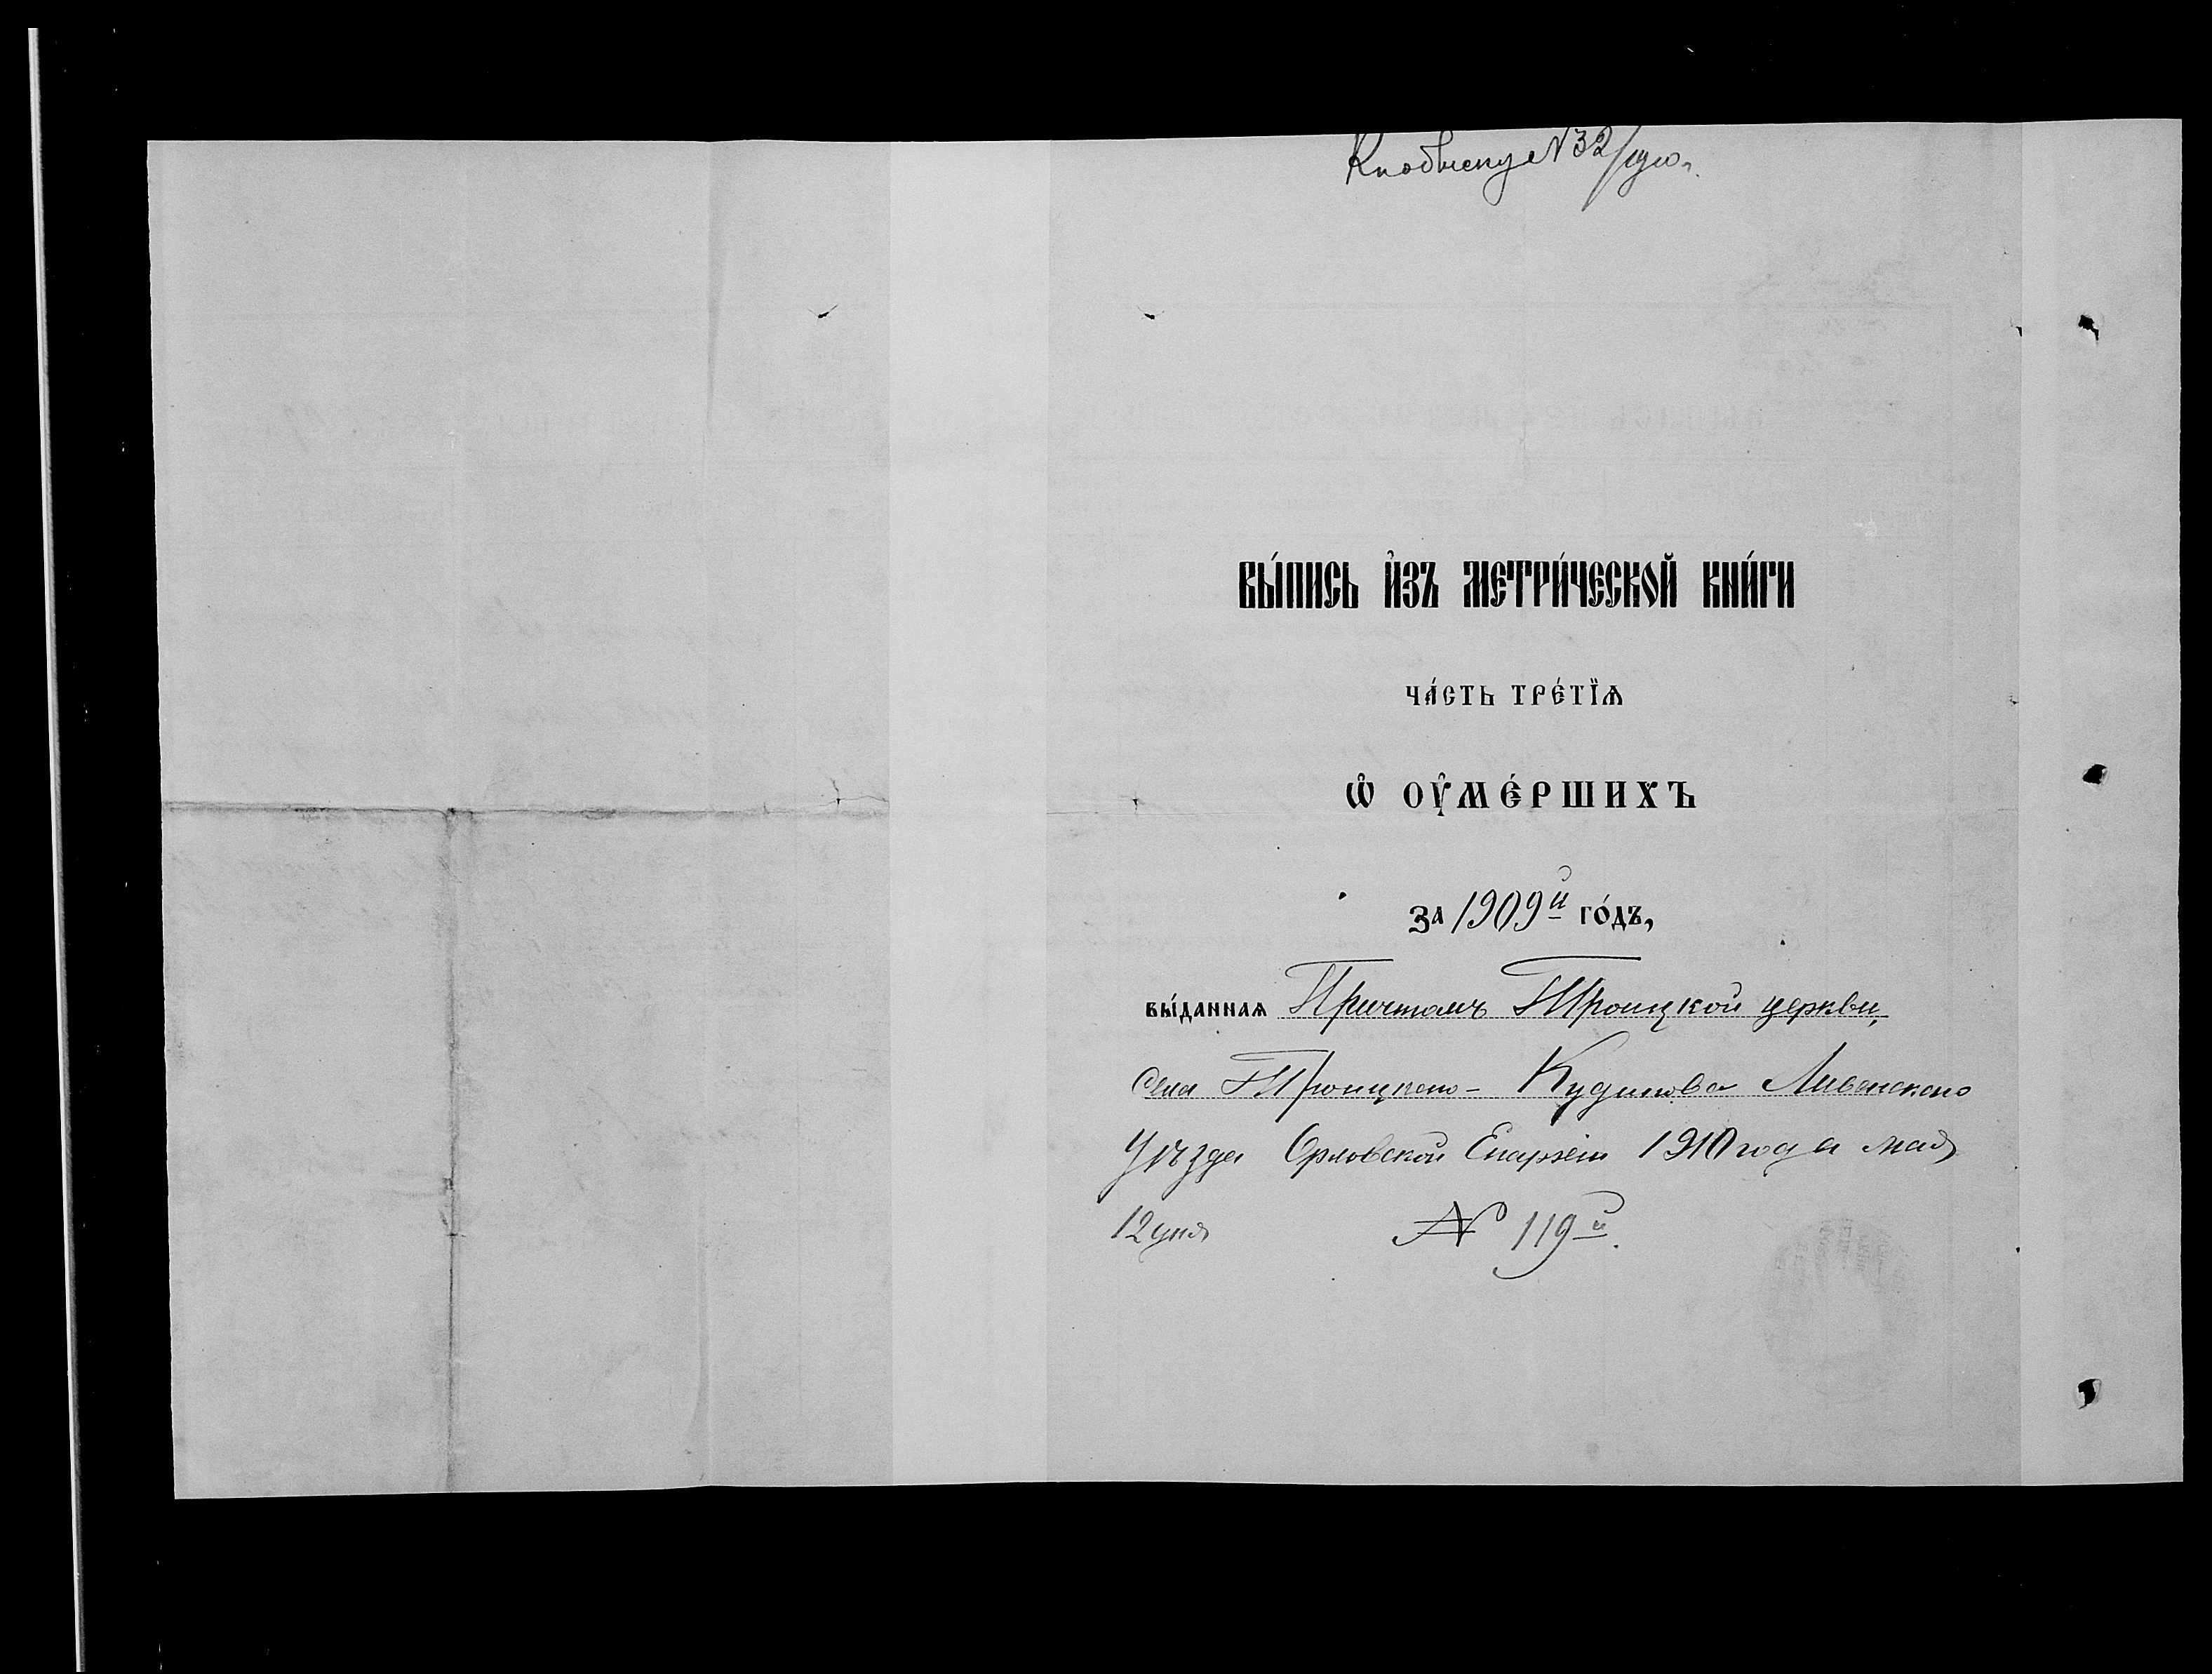 № 32/1910 г.
Вы́пись и҆зъ метри́ческой кни́ги
ча́сть тре́тїѧ
Ѡ҆ оу҆ме́ршихъ
за 1909й го́дъ,
вы́даннаѧ Причтомъ Троицкой церкви,
села Троицкаго- Кудинова Ливенскаго
Уѣзда Орловской Епархіи 1910 года мая
12 дня № 119й.